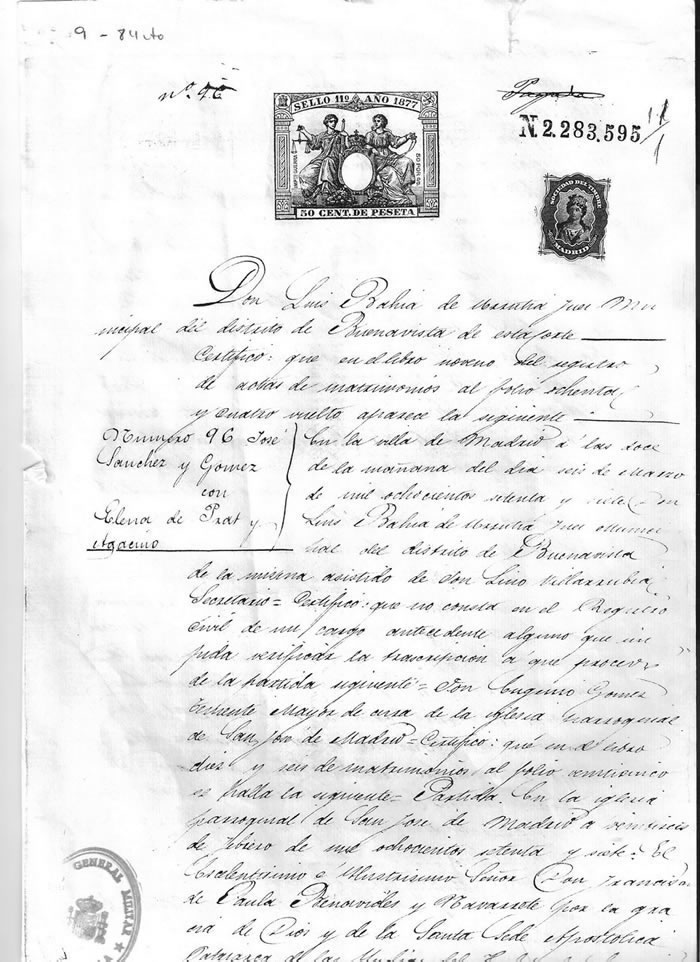 9 - 84 vto
nº 96
Pagada
SELLO 11º AÑO 1877
50 CENT. DE PESETA
N 2.283,595
SOCIEDAD DEL TIMBRE
MADRID
Don Luis Bahia de Urrutia Juez Mu
nicipal del distrito de Buenavista de esta corte
Certifico: que en el libro noveno del registro
de actas de matrimonios al folio ochenta
y cuatro vuelto aparece la siguiente
Numero 96 José
Sanchez y Gomez
con
Elena de Prat y
Agacino
En la villa de Madrid á las doce
de la mañana del dia seis de Marzo
de mil ochocientos setenta y siete Don
Luis Bahia de Urrutia Juez Munici
pal del distrito de Buenavista
de la misma asistido de Don Lino Villarrubia
Secretario = Certifico: que no consta en el Registro
Civil de mi cargo antecedente alguno que im
pida verificar la trascripcion á que procede
de la partida siguiente = Don Eugenio Gomez
Teniente Mayor de cura de la iglesia parroquial
de San José de Madrid = Certifico: que en el libro
diez y seis de matrimonios al folio veinticinco
se halla la siguiente = Partida. En la iglesia
parroquial de San Jose de Madrid a veintiseis
de febrero de mil ochocientos setenta y siete: El
Excelentisimo e Ilustrisimo Señor Don Francisco
de Paula Benavides y Navarrete por la gra
cia de Dios y de la Santa Sede Apostolica
Patriarca de las Indias
GENERAL MILITAR